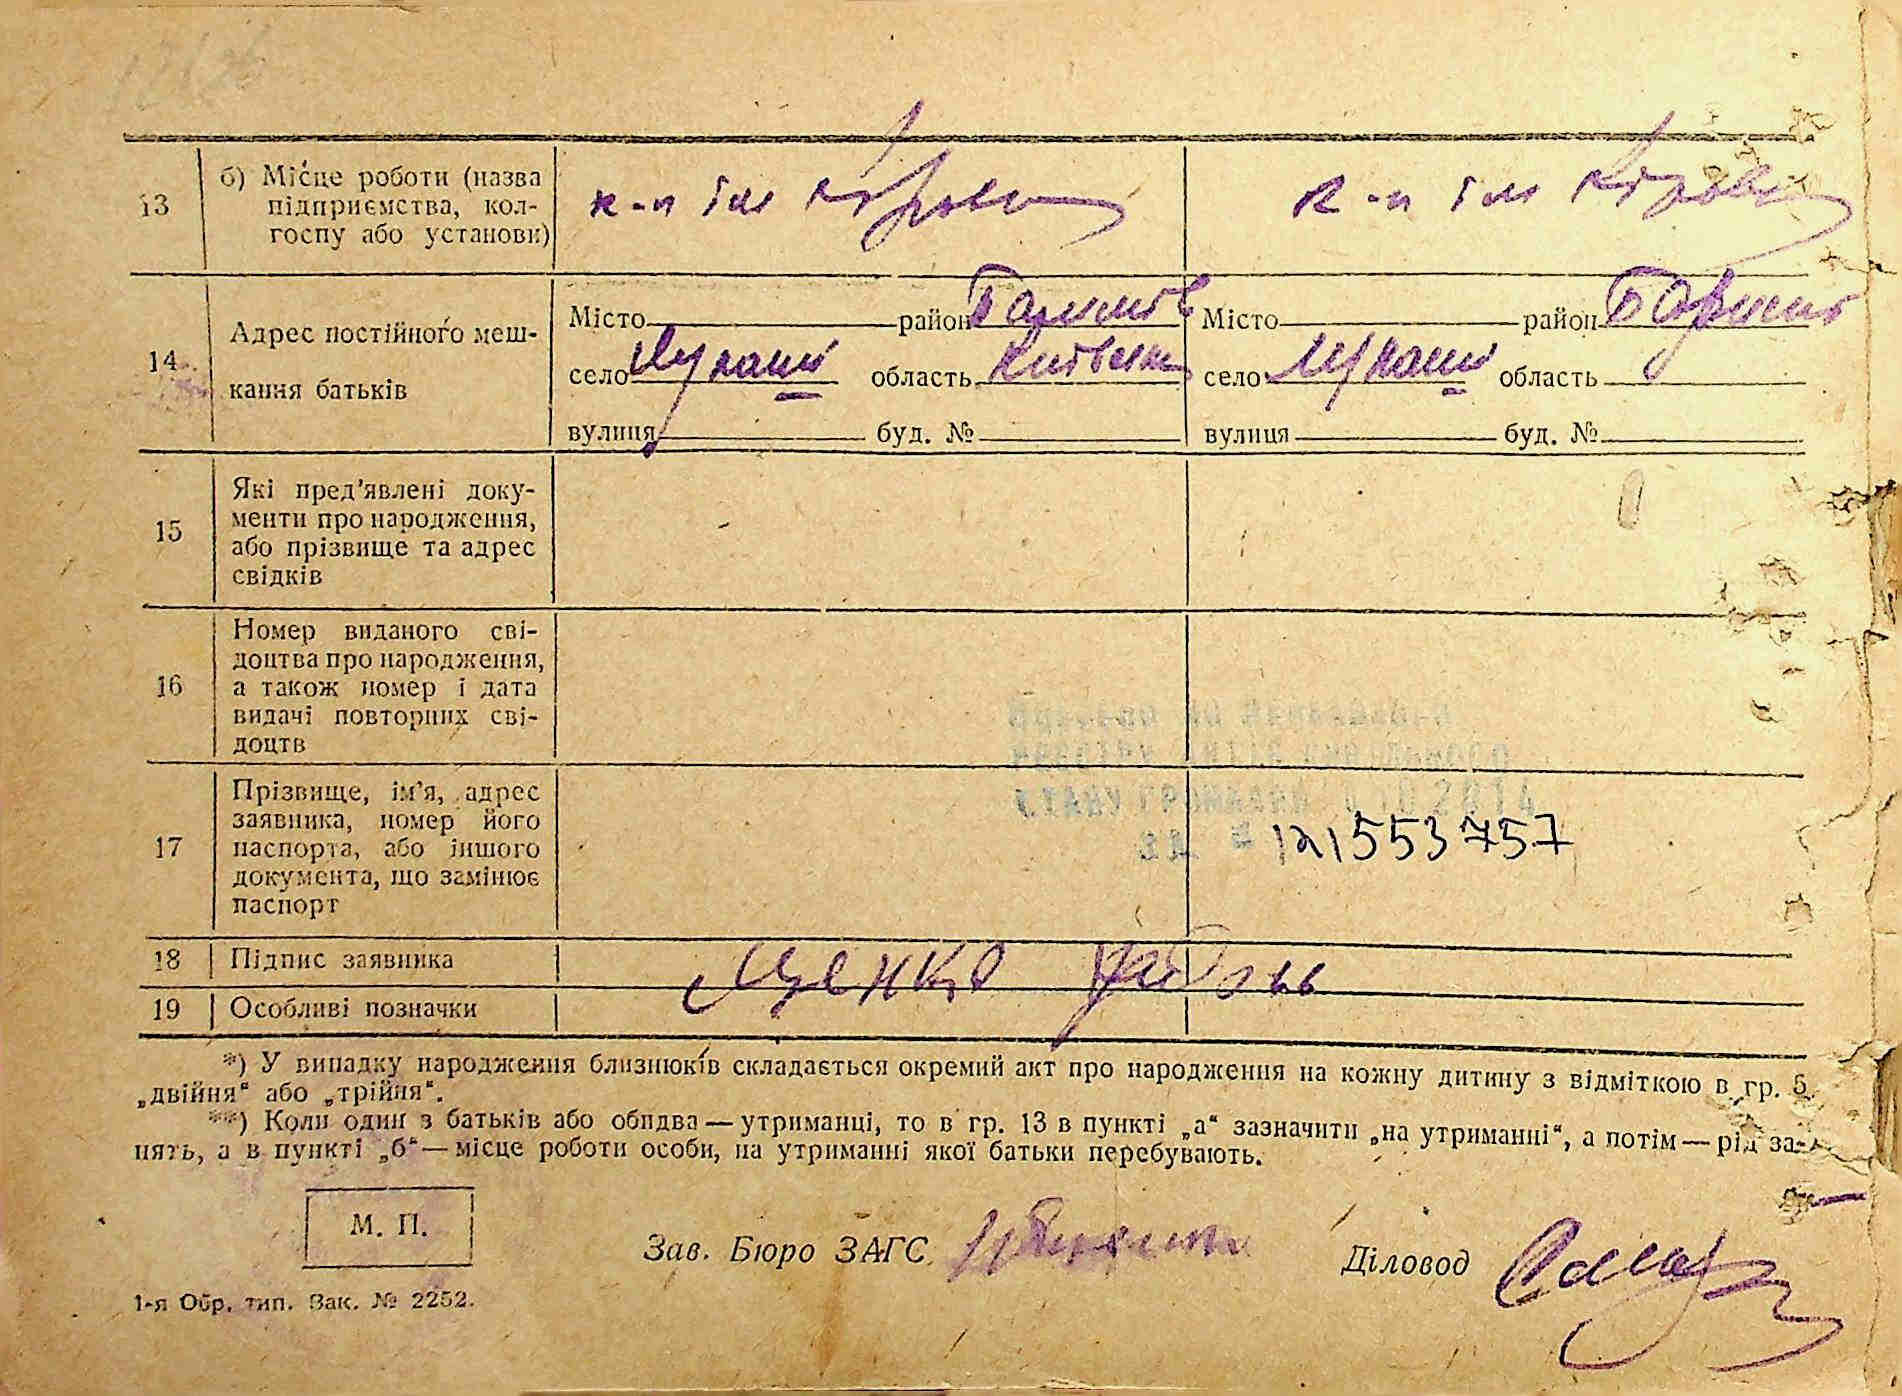 13
б) Місце роботи (назва
підприємства, кол-
госпу або установи)
к-п ім Кірова
к-п ім Кірова
14
Адрес постійного меш-
кання батьків
Місто район
село Лукаші область Київська
вулиця буд. №
Місто район Баришів
село Лукаші область
вулиця буд. №
15
Які пред'явлені доку-
менти про народження,
або прізвище та адрес
свідків
16
Номер виданого сві-
доцтва про народження,
а також номер і дата
видачі повторних сві-
доцтв
17
Прізвище, ім'я, адрес
заявника, номер його
паспорта, або іншого
документа, що замінює
паспорт
СТАНУ ГРОМАДЯН 2014
ЗА № 121553757
18
Підпис заявника
Яценко
19
Особливі позначки
*) У випадку народження близнюків складається окремий акт про народження на кожну дитину з відміткою в гр. 5
„двійня“ або „трійня“.
**) Коли один з батьків або обидва — утриманці, то в гр. 13 в пункті „а“ зазначити „на утриманні“, а потім — рід за-
нять, а в пункті „б“ — місце роботи особи, на утриманні якої батьки перебувають.
М. П.
Зав. Бюро ЗАГС
Діловод
1-я Обр. тип. Зак. № 2252.